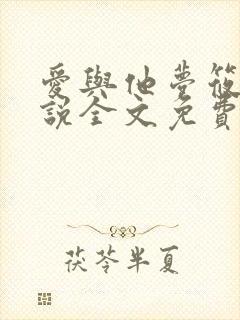 愛與他夢筱
說全文免費
茯苓半夏